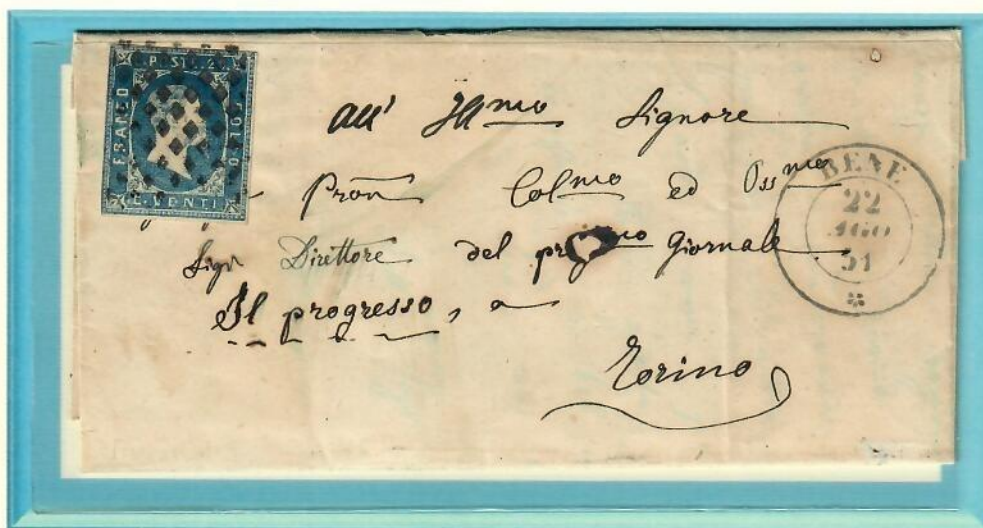 C. POSTE. 20.
FRANCO
BOLLO
C. VENTI
all' Ill.mo Signore
Pron Col.mo ed Oss.mo
Sigr Direttore del Giornale
Il progresso, a
Torino
BENE
22
AGO
51